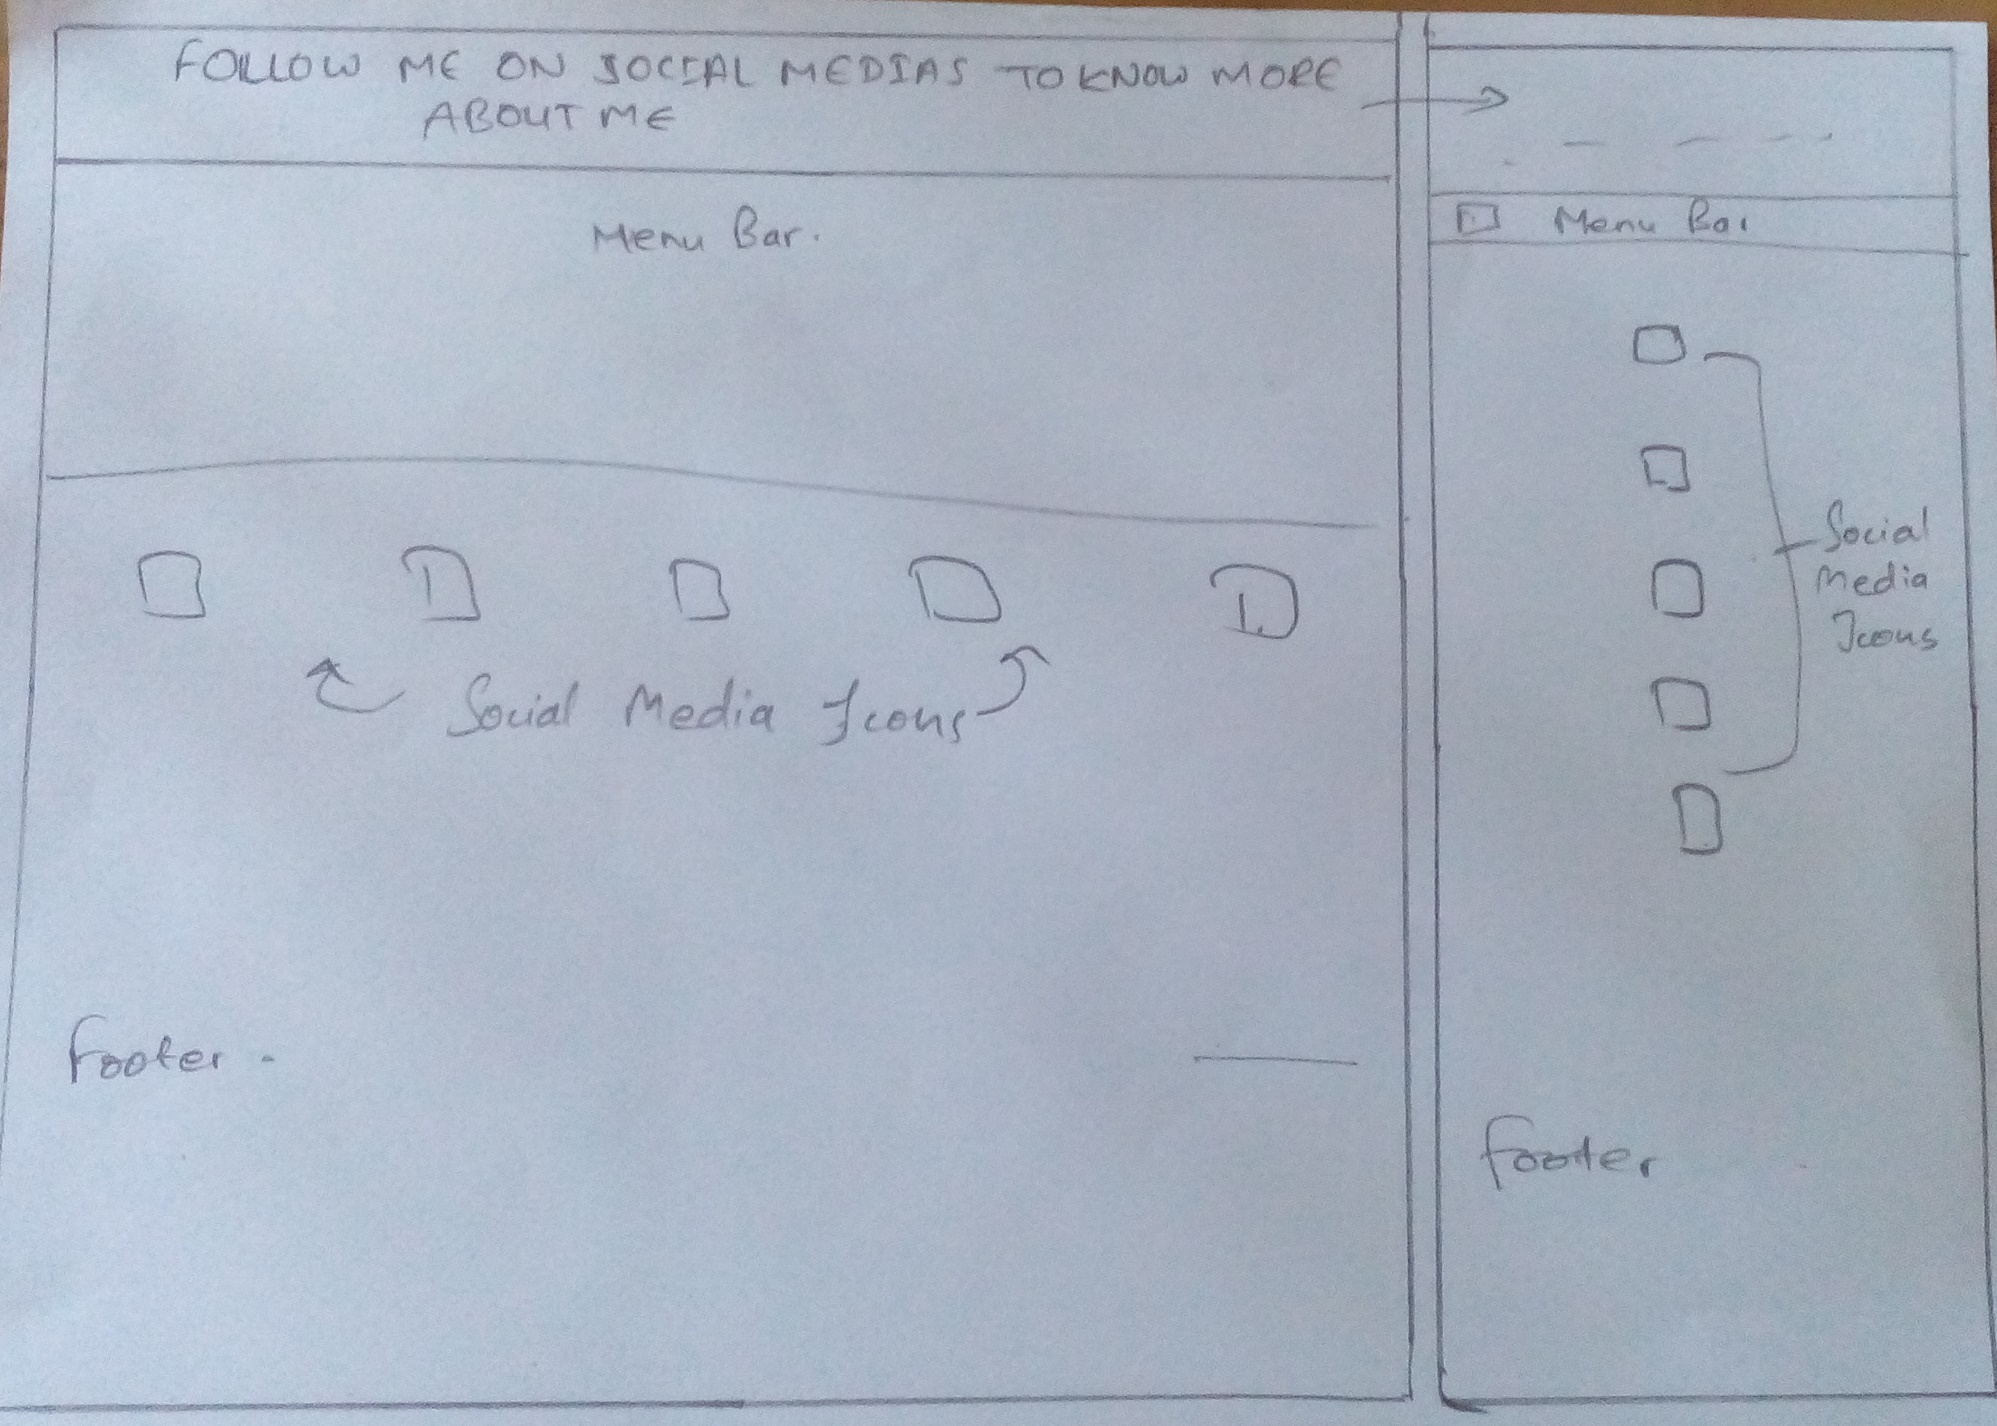 FOLLOW ME ON SOCIAL MEDIAS TO KNOW MORE
ABOUT ME
Menu Bar.
Social Media Icons
Footer
Menu Bar
Social
Media
Icons
Footer